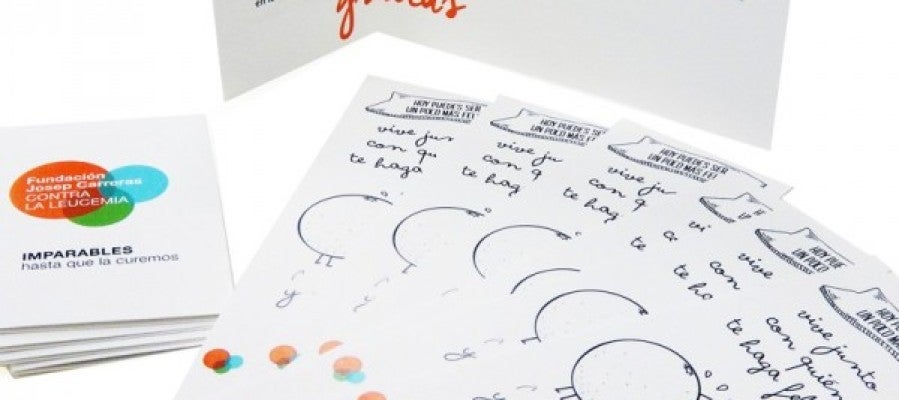 gracias
Fundación
Josep Carreras
CONTRA
LA LEUCEMIA
IMPARABLES
hasta que la curemos
HOY PUEDES SER
UN POCO MÁS FEL
vive jun
con qu
te haga
HOY PUEDES SER
UN POCO MÁS FE
vive ju
con q
te hag
HOY PUEDES SER
UN POCO MÁS FEL
vive ju
con q
te hag
vi
c
te
HOY PUE
UN POCO
vive
con
te ha
HOY PUEDE
UN POCO MÁS
vive junto
con quién
te haga fel